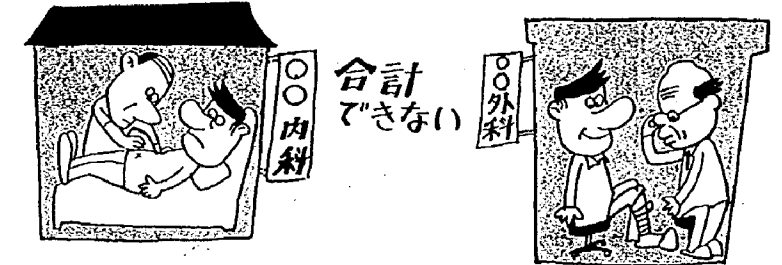 ○○内科
合計
できない
○○外科